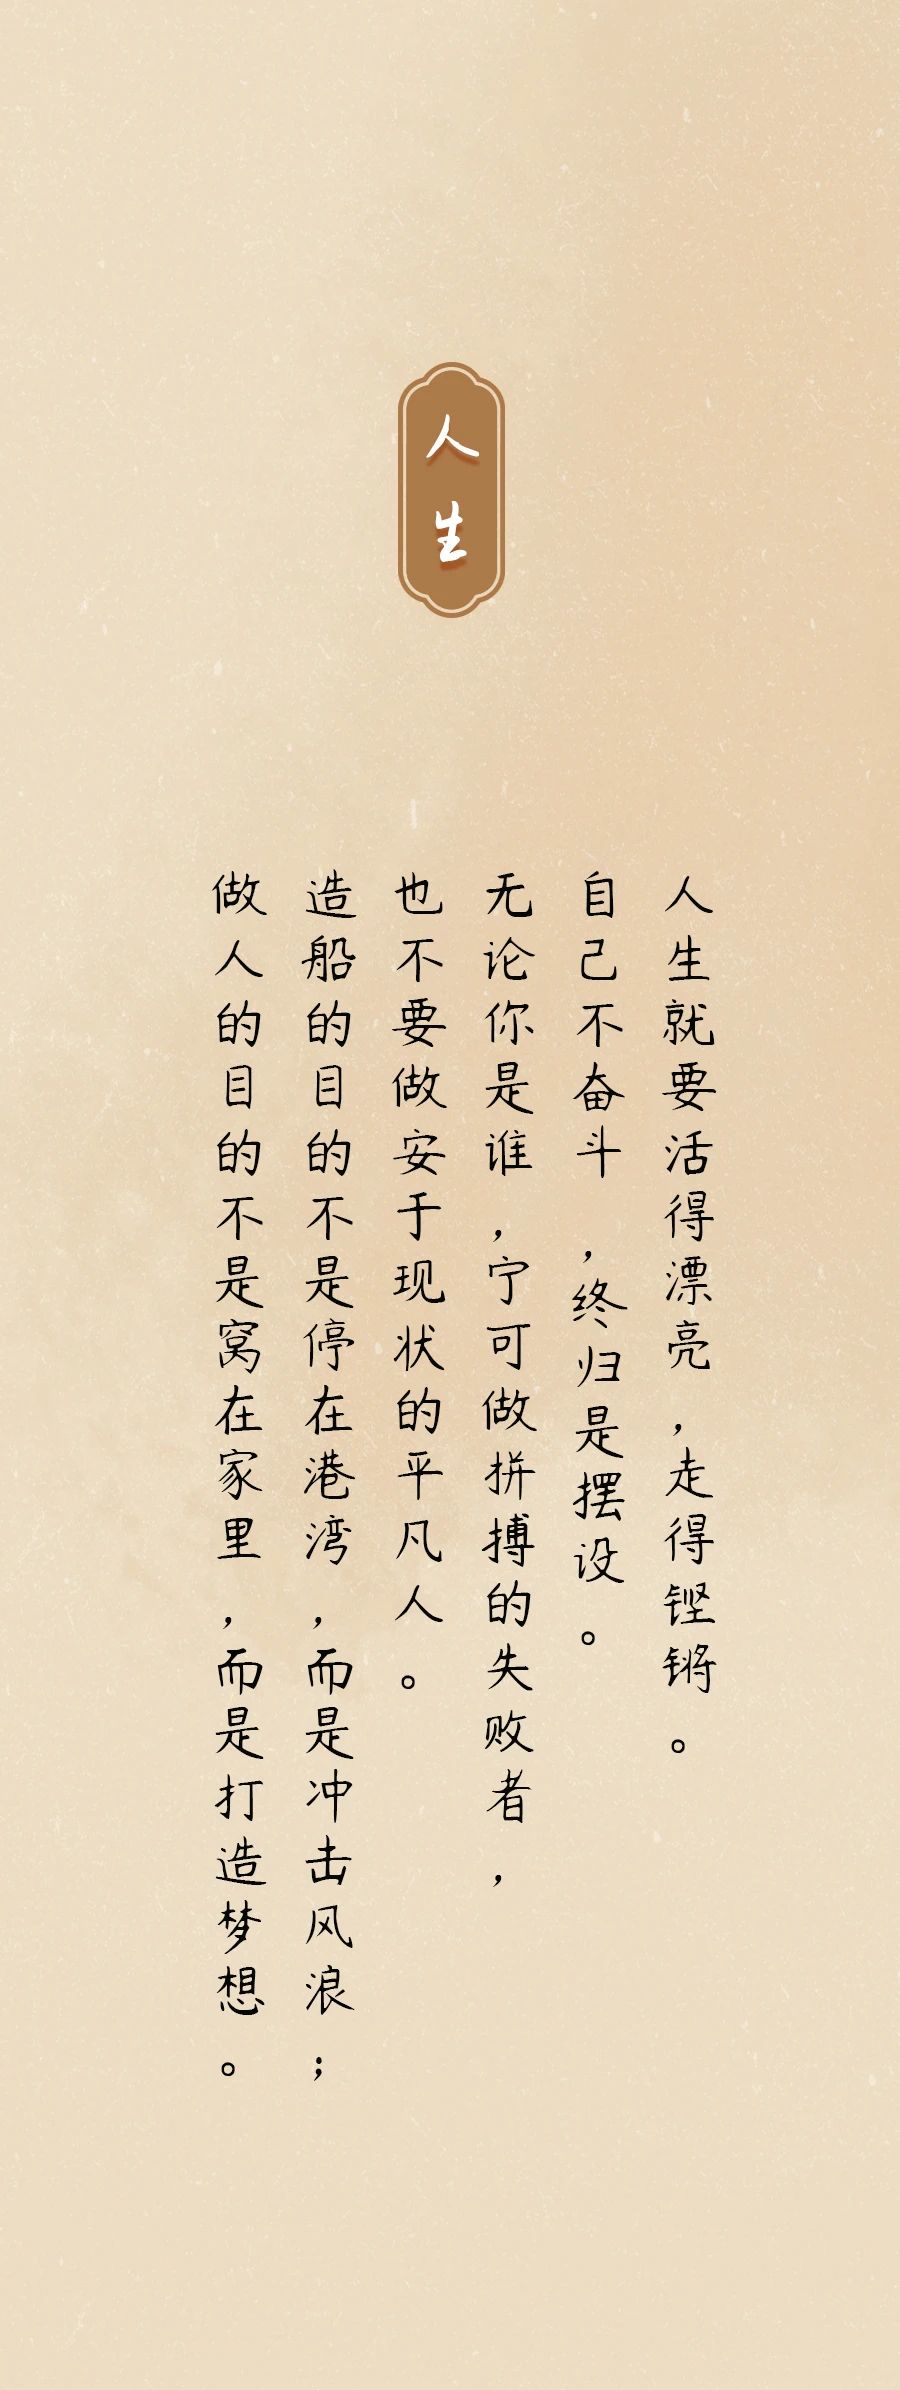 人生
人生就要活得漂亮，走得铿锵。
自己不奋斗，终归是摆设。
无论你是谁，宁可做拼搏的失败者，
也不要做安于现状的平凡人。
造船的目的不是停在港湾，而是冲击风浪；
做人的目的不是窝在家里，而是打造梦想。